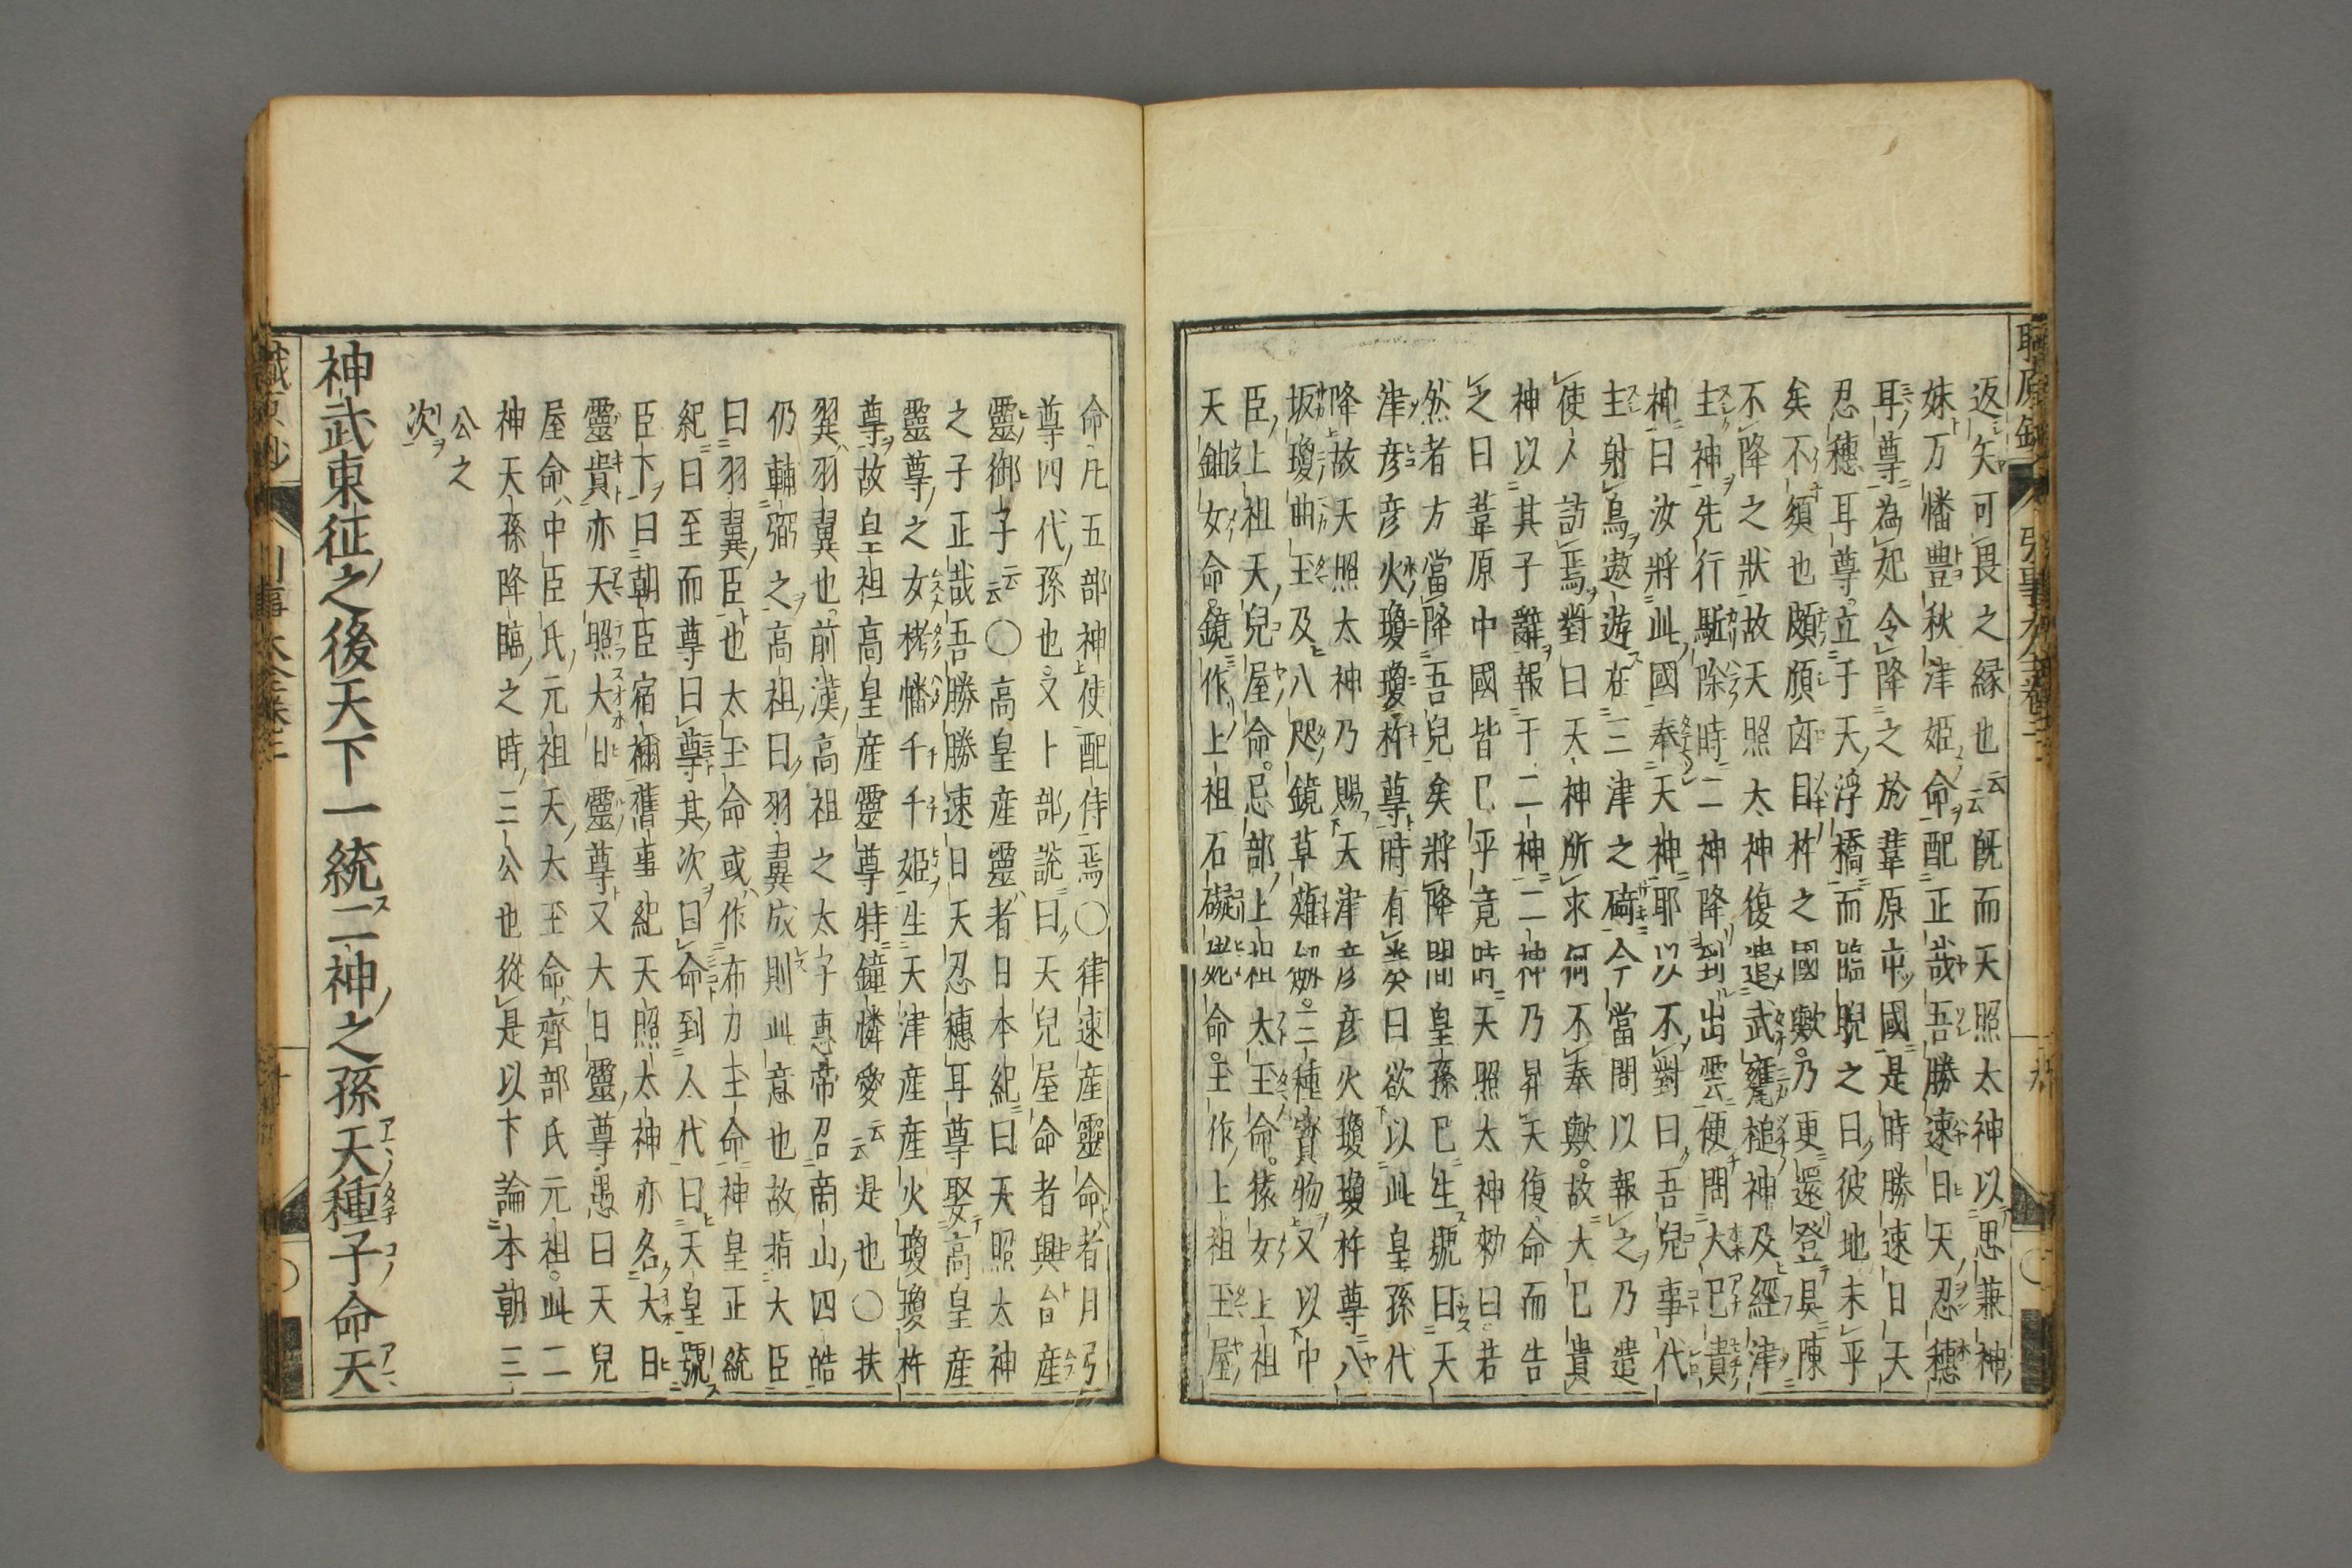 返矢可畏之縁也云云既而天照太神以思兼神
妹万幡豊秋津姫命配正哉吾勝速日天忍穗
耳尊為妃令降之於葦原中國是時勝速日天
忍穗耳尊立于天浮橋而臨睨之曰彼地未平
矣不須也頗傾凶目杵之國歟乃更還登具陳
不降之狀故天照太神復遣武甕槌神及經津
主神先行駈除時二神降到出雲便問大巳貴
神曰汝將此國奉天神耶以不對曰吾兒事代
主射鳥遨遊在三津之碕今當問以報之乃遣
使人訪焉對曰天神所求何不奉歟故大巳貴
神以其子辭報于二神二神乃昇天復命而告
之曰葦原中國皆巳平竟時天照太神勅曰若
然者方當降吾兒矣將降間皇孫巳生號曰天
津彦彦火瓊瓊杵尊時有奏曰欲以此皇孫代
降故天照太神乃賜天津彦彦火瓊瓊杵尊八
坂瓊曲玉及八咫鏡草薙劔三種寶物又以中
臣上祖天兒屋命忌部上祖太玉命猿女上祖
天鈿女命鏡作上祖石礙姥命玉作上祖玉屋
命凡五部神使配侍焉〇律速産靈命者月弓
尊四代孫也又卜部説曰天兒屋命者興台産
靈御子云云〇高皇産靈者日本紀曰天照太神
之子正哉吾勝勝速日天忍穗耳尊娶高皇産
靈尊之女栲幡千千姫生天津産産火瓊瓊杵
尊故皇祖高皇産靈尊特鐘憐愛云云是也〇扶
翼羽翼也前漢高祖之太子惠帝召商山四皓
仍輔弼之高祖曰羽翼成則此意也故指大臣
曰羽翼臣也太玉命或作布刀玉命神皇正統
紀曰至而尊曰尊其次曰命到人代曰天皇號
臣下曰朝臣宿禰舊事紀天照太神亦名大日
靈貴亦天照大日靈尊又大日靈尊愚曰天兒
屋命中臣氏元祖天太玉命齊部氏元祖此二
神天孫降臨之時三公也從是以下論本朝三
公之
次
神武東征之後天下一統二神之孫天種子命天